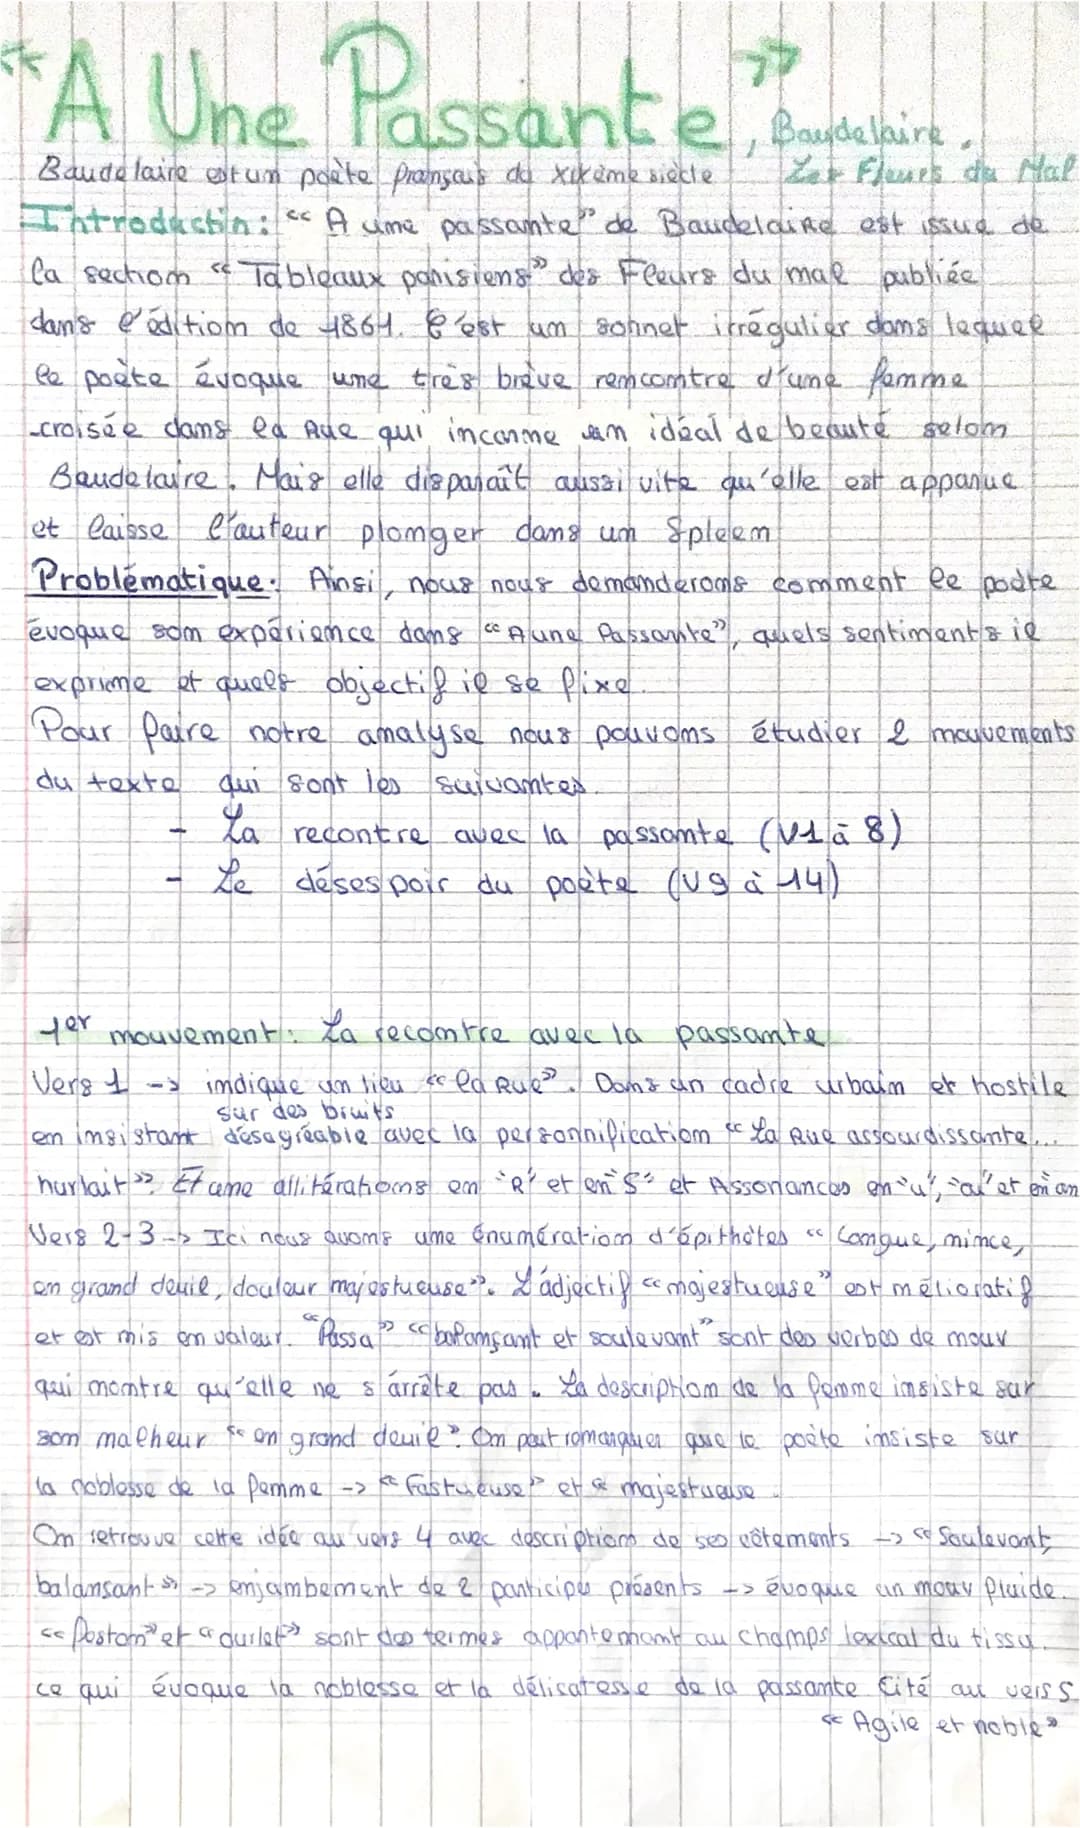 « A Une Passante », Baudelaire,
Baudelaire est un poète français du XIXème siècle Les Fleurs du Mal
Introduction : « A une passante » de Baudelaire est issue de
la section « Tableaux parisiens » des Fleurs du mal publiée
dans l'édition de 1861. C'est un sonnet irrégulier dans lequel
le poète évoque une très brève rencontre d'une femme
croisée dans la rue qui incarne un idéal de beauté selon
Baudelaire. Mais elle disparaît aussi vite qu'elle est apparue
et laisse l'auteur plonger dans un Spleen
Problématique : Ainsi, nous nous demanderons comment le poète
évoque son expérience dans « A une Passante », quels sentiments il
exprime et quels objectif il se fixe.
Pour faire notre analyse nous pouvons étudier 2 mouvements
du texte qui sont les suivantes.
- La recontre avec la passante (V1 à 8)
- Le désespoir du poète (V9 à 14)
1er mouvement : La recontre avec la passante
Vers 1 -> indique un lieu « la Rue ». Dans un cadre urbain et hostile
sur des bruits
en insistant désagréable avec la personnification « La Rue assourdissante...
hurlait ». Et une allitérations en "R" et en "S" et Assonances en "u", "ou" et en an
Vers 2-3 -> Ici nous avons une énumération d'épithètes « Longue, mince,
en grand deuil, douleur majestueuse ». L'adjectif « majestueuse » est mélioratif
et est mis en valeur. « Passa » « balançant et soulevant » sont des verbes de mouv
qui montre qu'elle ne s'arrête pas. La description de la femme insiste sur
son malheur « en grand deuil ». On peut remarquer que le poète insiste sur
la noblesse de la femme -> « Fastueuse » et « majestueuse.
On retrouve cette idée au vers 4 avec description de ses vêtements -> « Soulevant,
balansant » -> enjambement de 2 participes présents -> évoque un mouv fluide.
« feston » et « ourlet » sont des termes appartenant au champs lexical du tissu.
ce qui évoque la noblesse et la délicatesse de la passante Cité au vers 5
« Agile et noble »